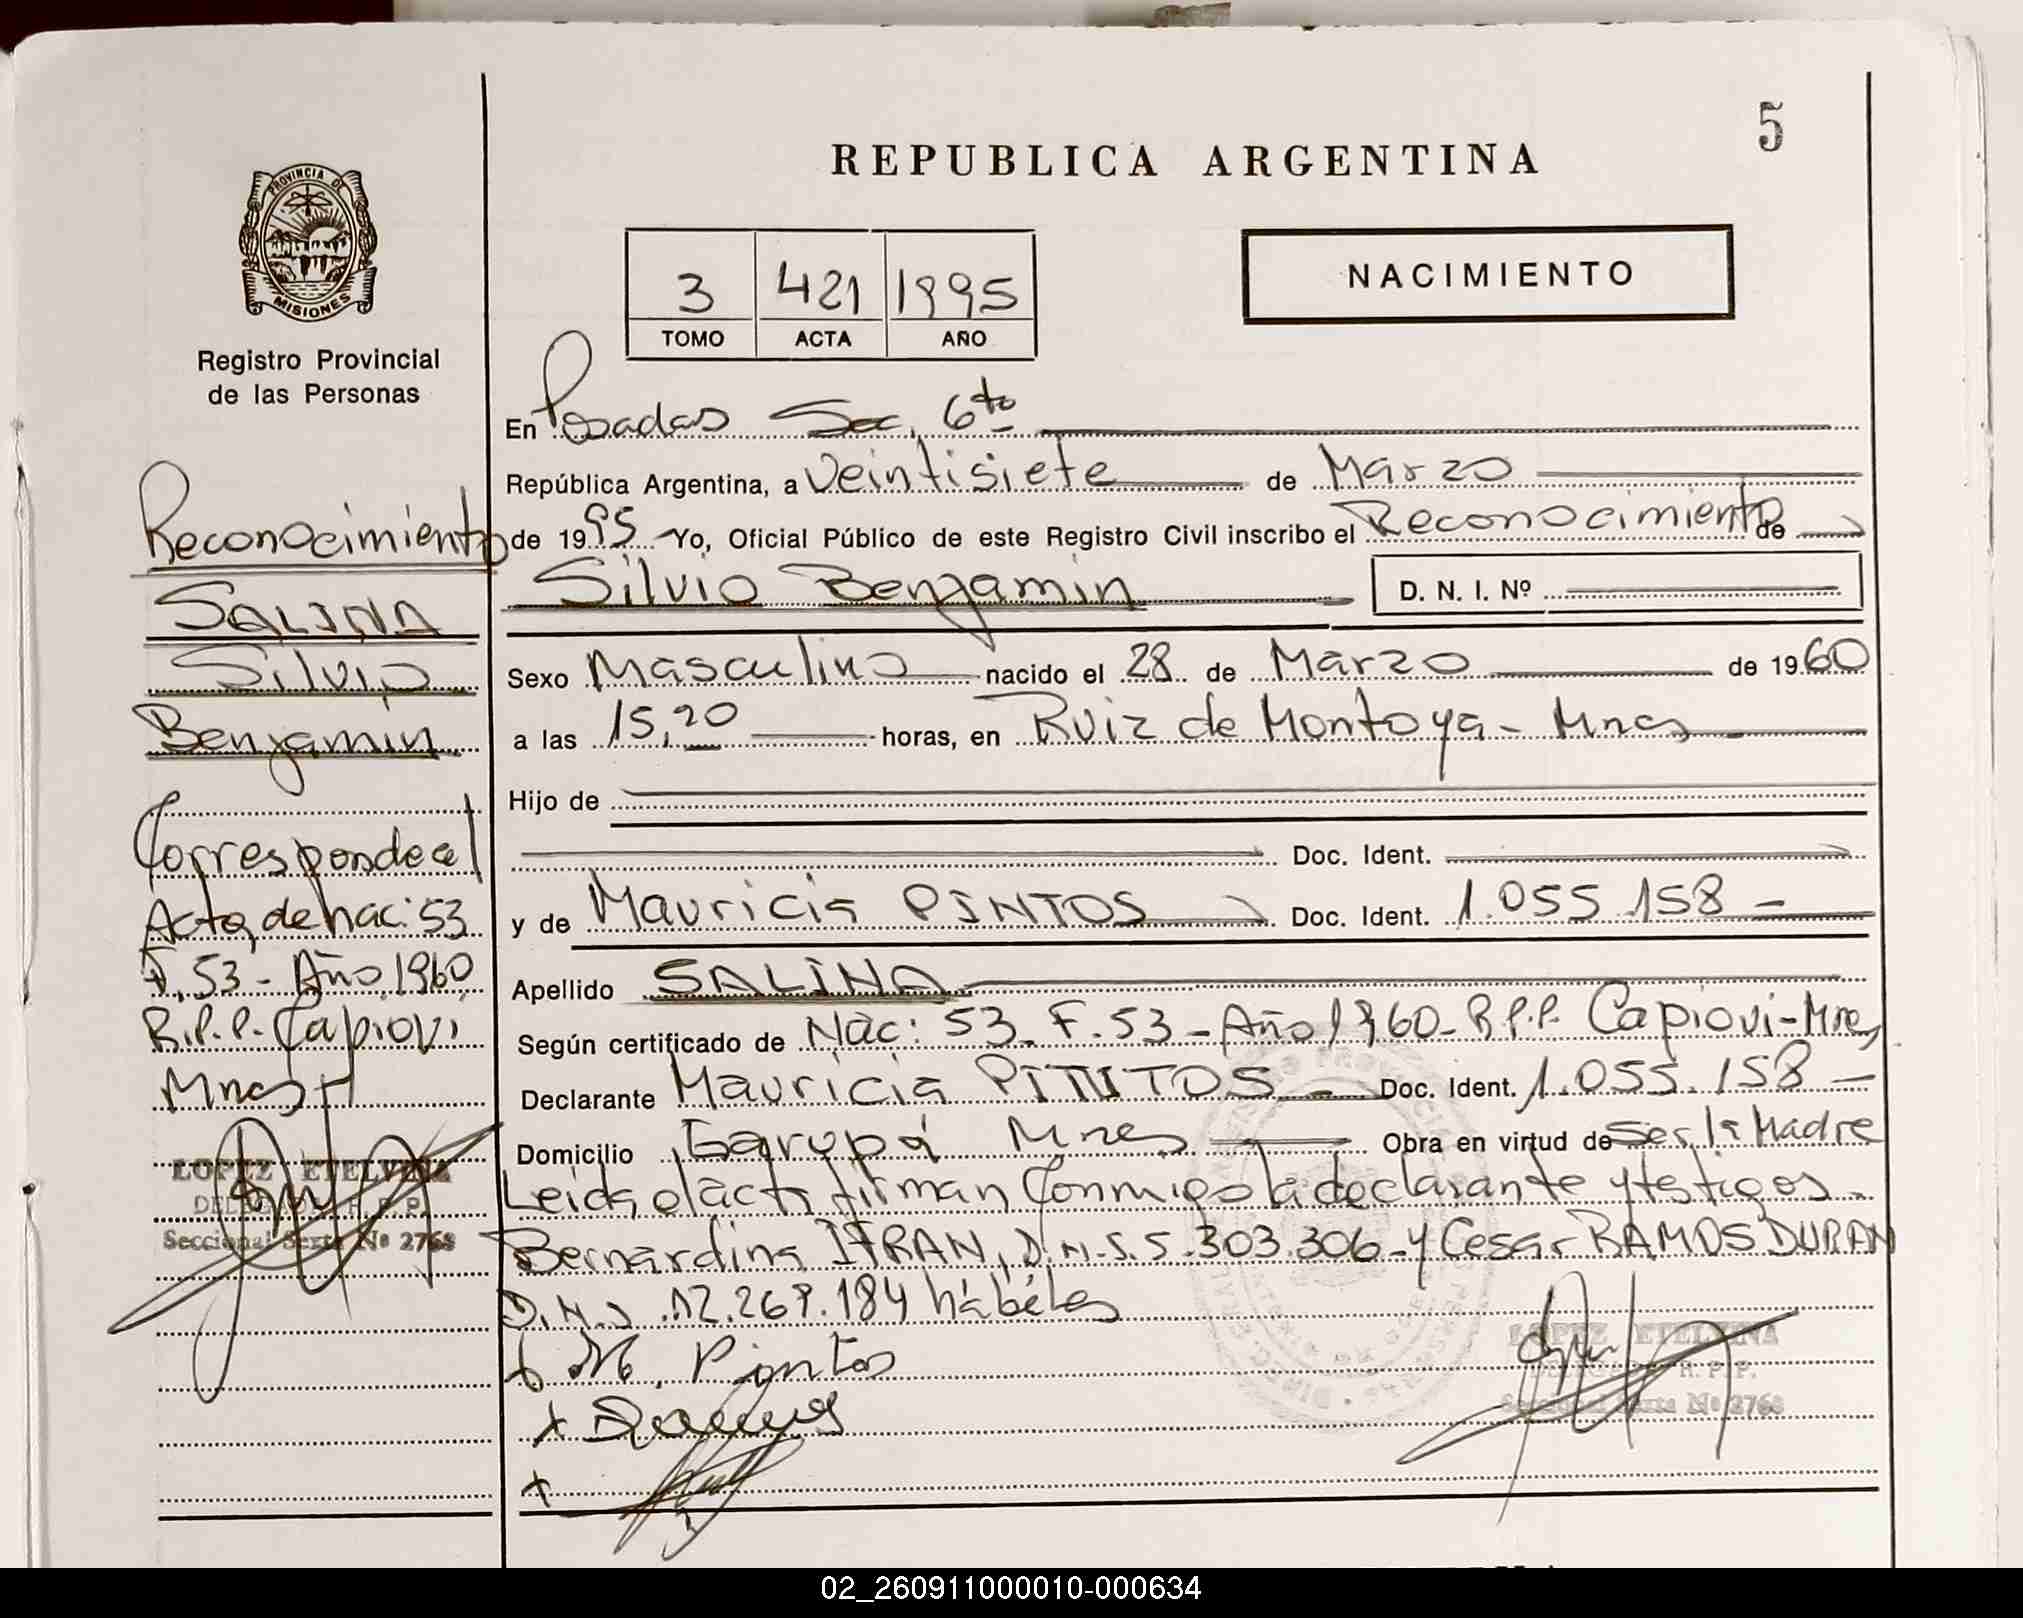 5
REPUBLICA ARGENTINA
PROVINCIA DE
MISIONES
Registro Provincial
de las Personas
3 421 1995
TOMO ACTA AÑO
NACIMIENTO
En Posadas Sec. 6ta
República Argentina, a Veintisiete de Marzo
de 1995 Yo, Oficial Público de este Registro Civil inscribo el Reconocimiento de
Silvio Benjamin D. N. I. Nº
Sexo Masculino nacido el 28 de Marzo de 1960
a las 15,20 horas, en Ruiz de Montoya - Mnes
Hijo de
Doc. Ident.
y de Mauricia PINTOS Doc. Ident. 1.055.158 -
Apellido SALINA
Según certificado de Nac: 53 - F. 53 - Año 1960 - R.P.P. Capiovi - Mnes
Declarante Mauricia PINTOS - Doc. Ident. 1.055.158 -
Domicilio Garupá Mnes Obra en virtud de Ser la Madre
Leida el acta firman Conmigo la declarante y testigos
Bernardina IFRAN, D.N.I. 5.303.306 - y Cesar RAMOS DURAN
D.N.I. 12.267.184 hábiles
M. Pintos
LOPEZ ETELVINA
DELEGADA R. P. P.
Seccional Sexta Nº 2768
Reconocimiento
SALINA
Silvio
Benjamin
Corresponde al
Acta de nac: 53
F. 53 - Año 1960
R.P.P. Capiovi
Mnes
LOPEZ ETELVINA
DELEGADA R. P. P.
Seccional Sexta Nº 2768
02_260911000010-000634